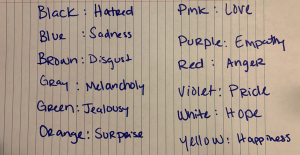 Black : Hatred
Blue : Sadness
Brown : Disgust
Gray : Melancholy
Green : Jealousy
Orange : Surprise
Pink : Love
Purple : Empathy
Red : Anger
Violet : Pride
White : Hope
Yellow : Happiness